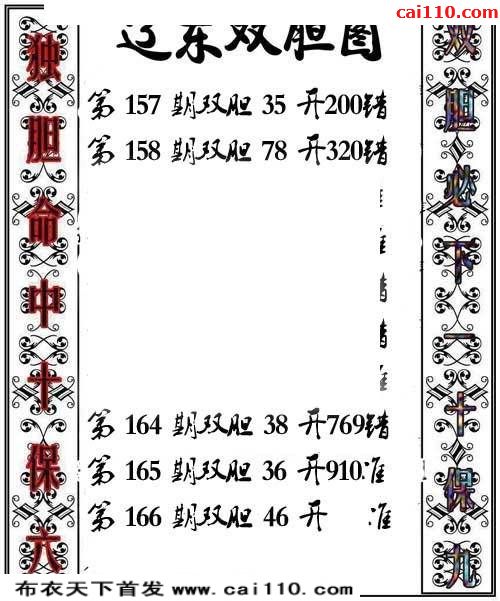 cai110.com
辽东双胆图
独胆命中十保六
第 157 期双胆 35 开200错
第 158 期双胆 78 开320错
第 164 期双胆 38 开769错
第 165 期双胆 36 开910准
第 166 期双胆 46 开 准
双胆必下一十保九
布衣天下首发 www.cai110.com